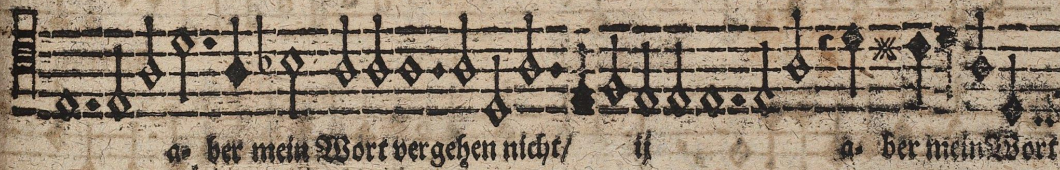 a- ber mein Wort vergehen nicht/ ij a- ber mein Wort